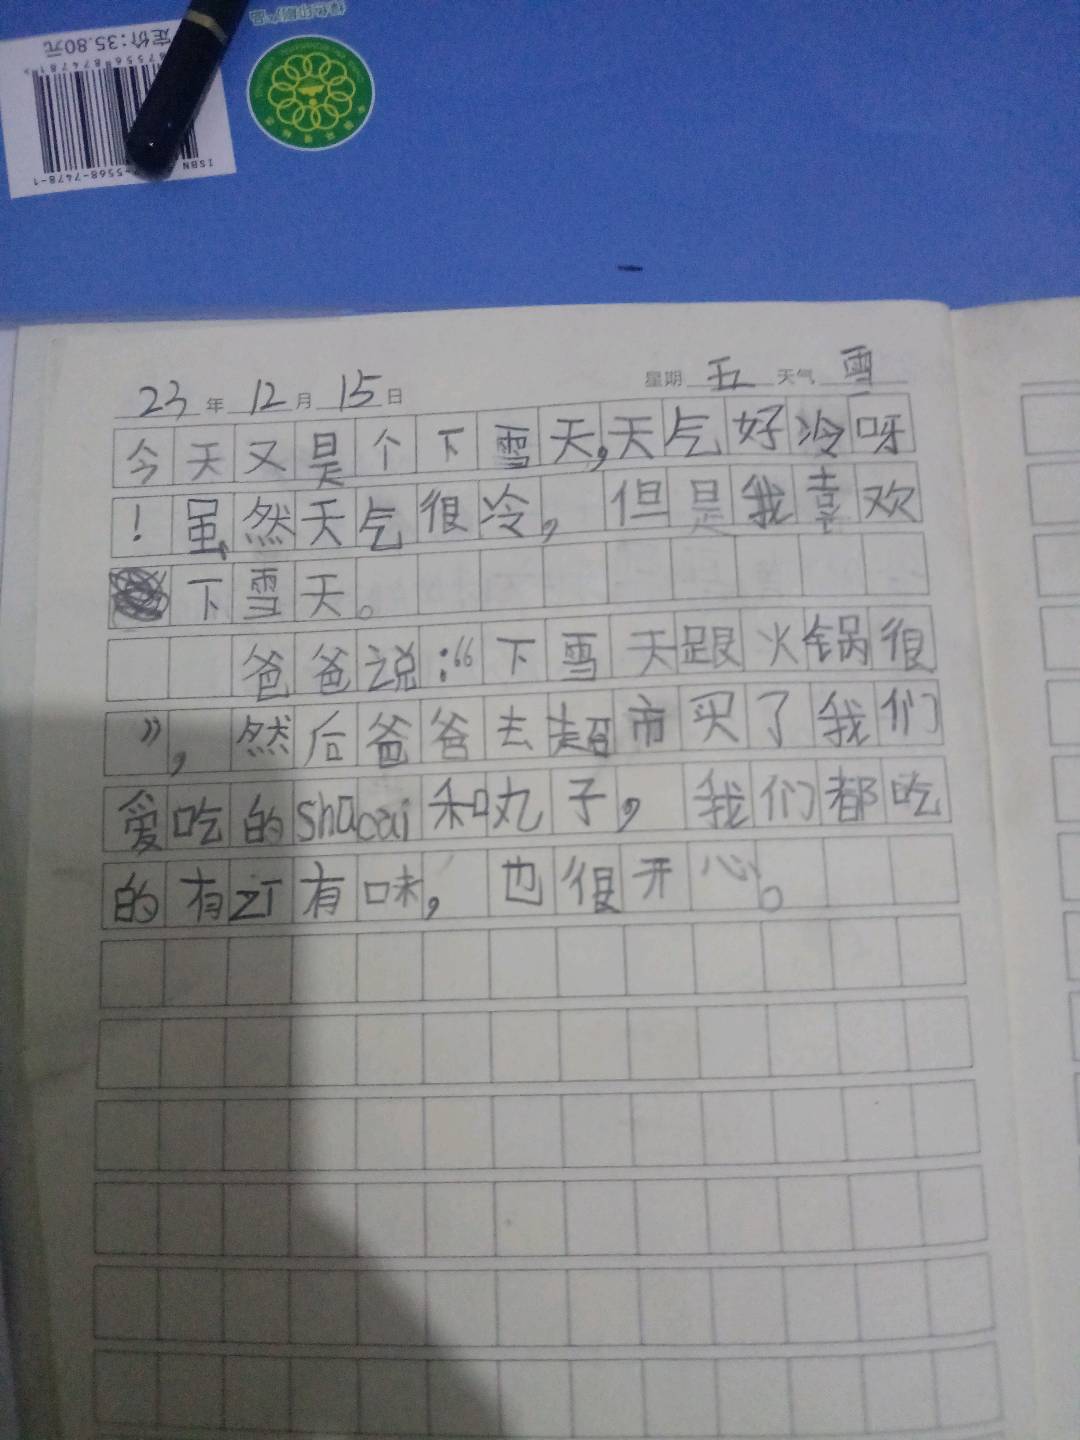 绿色印刷产品
定价:35.80元
ISBN
23年12月15日 星期五 天气雪
今天又是个下雪天,天气好冷呀
!虽然天气很冷,但是我喜欢
下雪天。
爸爸说:“下雪天跟火锅很
”,然后爸爸去超市买了我们
爱吃的shacai和丸子,我们都吃
的有ZI有味,也很开心。